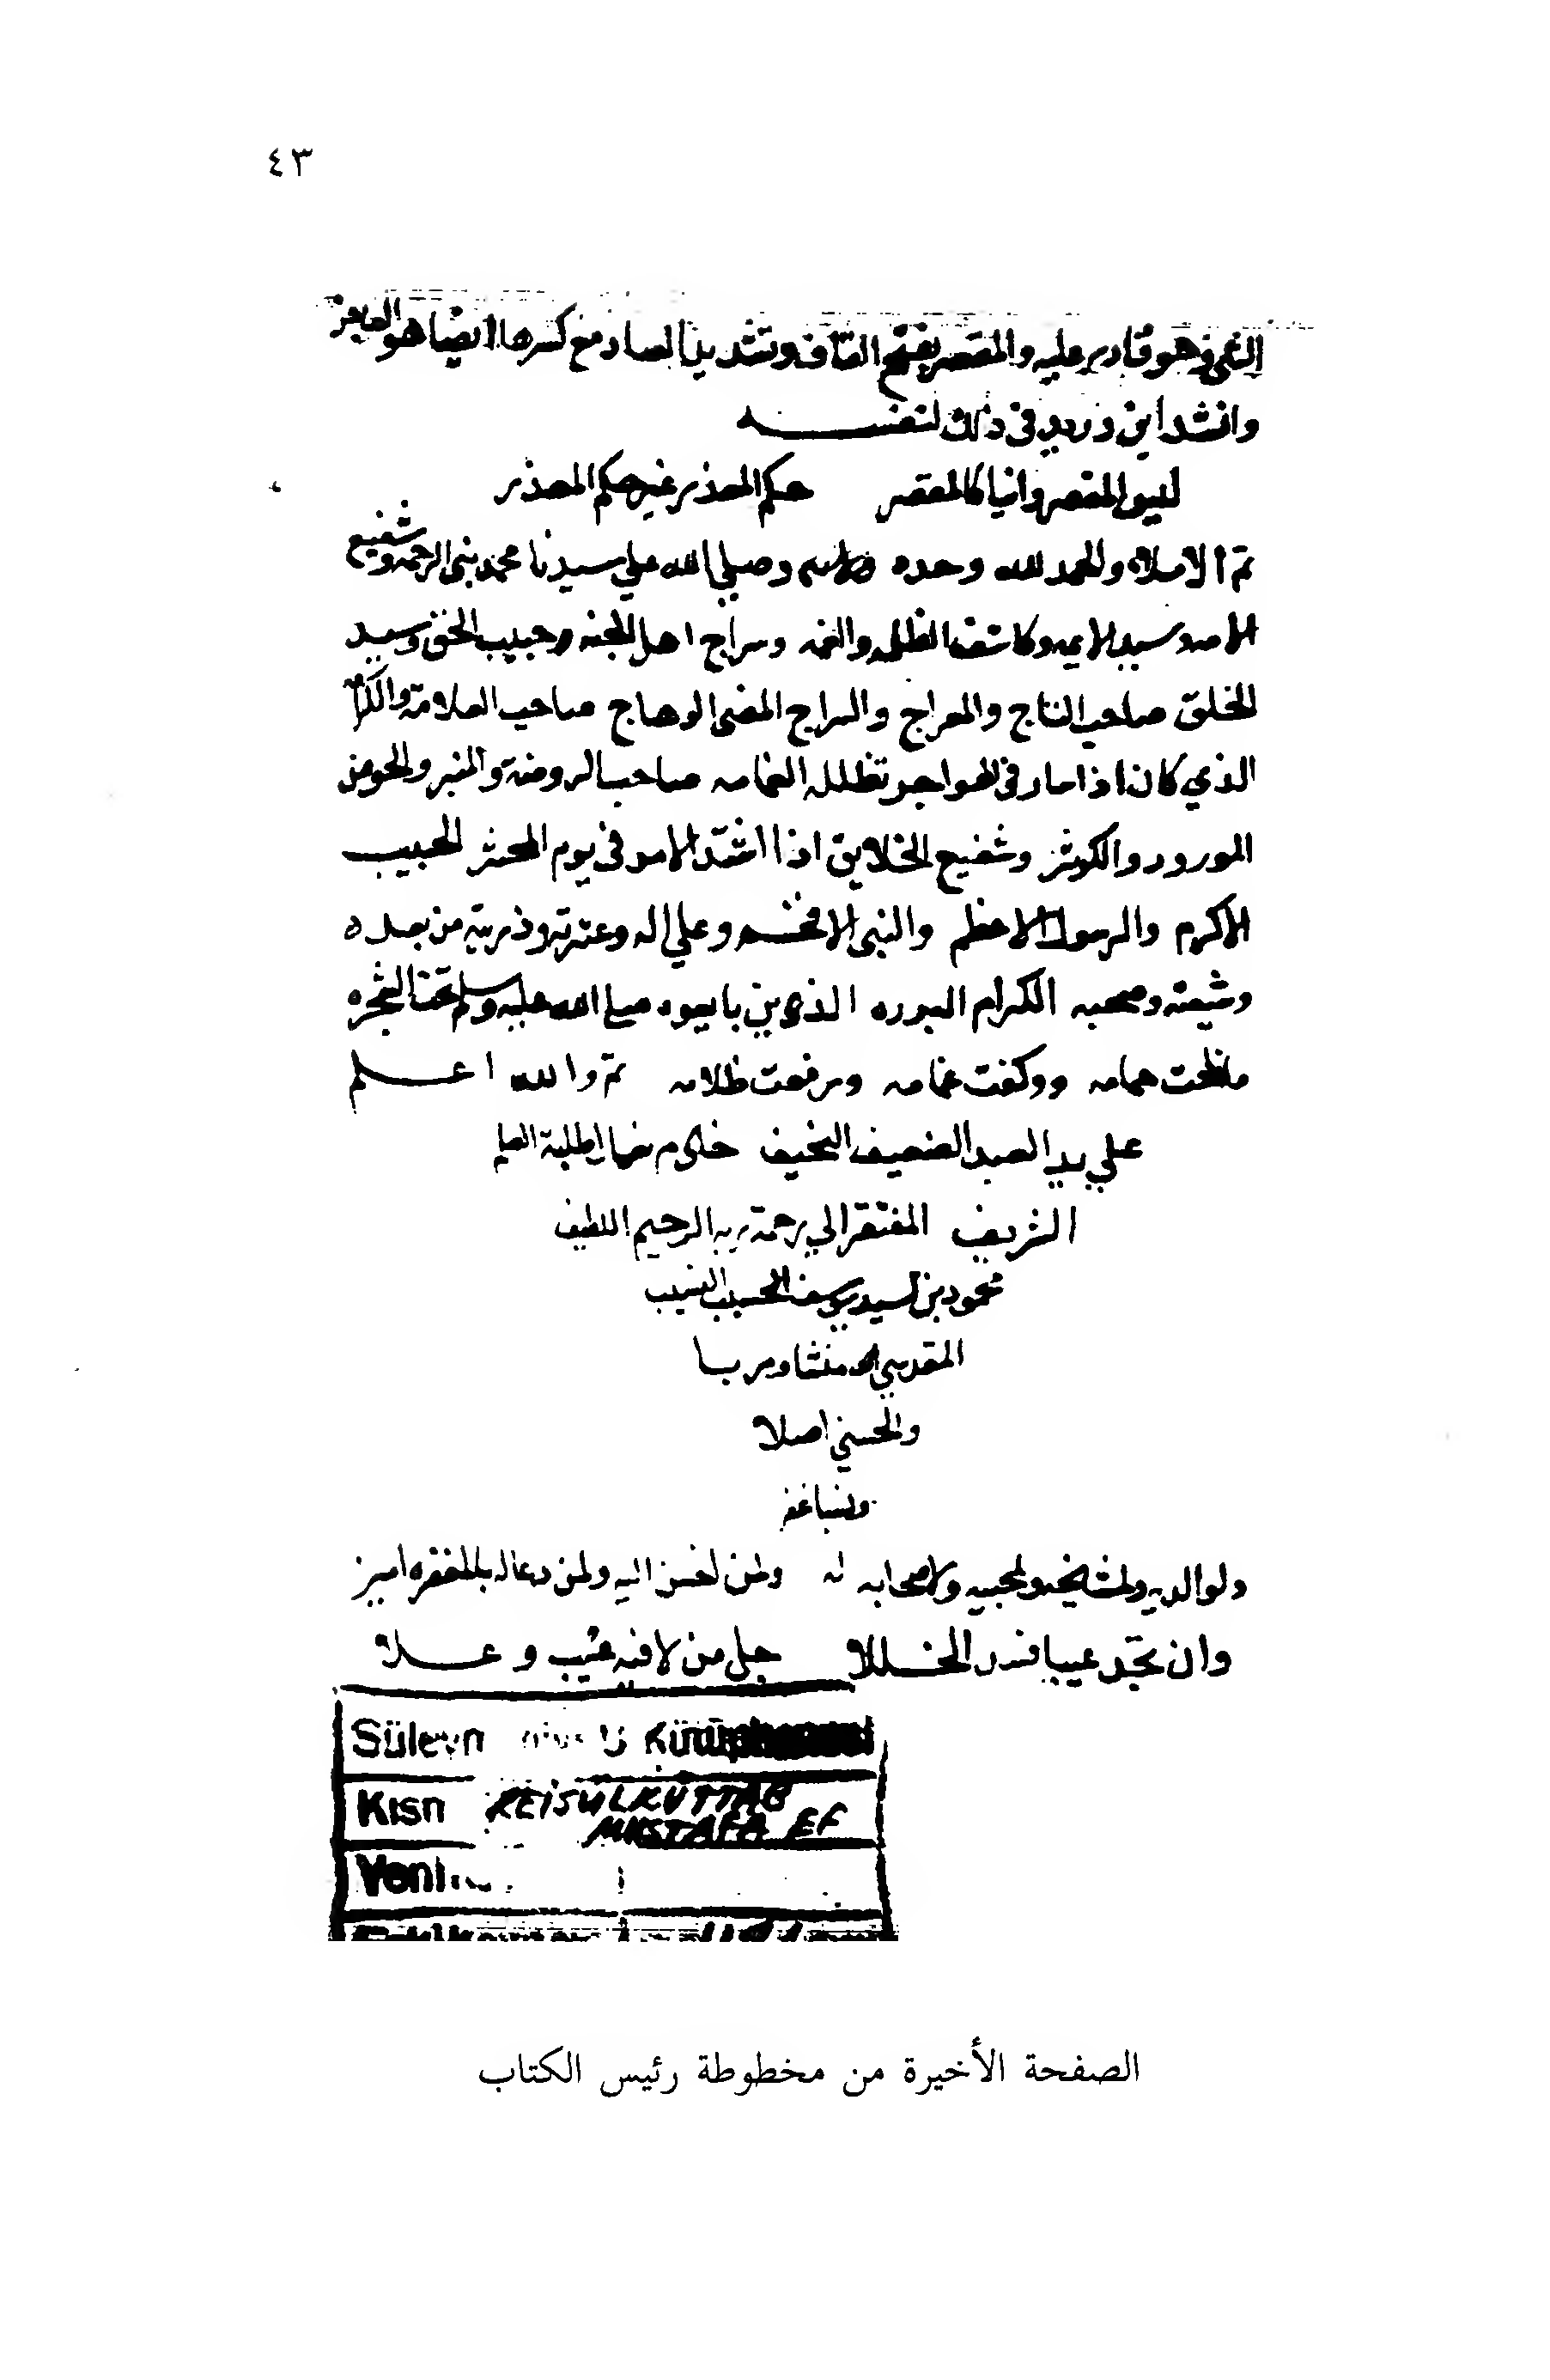 ٤٣
وهو قادر عليه والمقصر بفتح القاف وتشديد الصاد مع كسرها ايضا هو العاجز
وانشد ابن دريد في ذلك لنفسه
ليس المقصر وانيا كالمقصر حكم المعذر غير حكم المعذر
تم الاملاء والحمد لله وحده وصلي الله علي سيدنا محمد نبي الرحمه وشفيع
الامه وكاشف الظلمه والغمه وسراج اهل الجنه وحبيب الحق وسيد
الخلق صاحب التاج والمعراج والسراج المضى الوهاج صاحب العلامة والكرامه
الذي كان اذا سار في الهواجر تظلله الغمامه صاحب الروضة والمنبر والحوض
المورود والكوثر وشفيع الخلايق اذا اشتد الامر في يوم المحشر الحبيب
الاكرم والرسول الاعظم والنبى الافخم وعلي اله وعترته وذريته من بعده
وشيعته وصحبه الكرام البرره الذين بايعوه صلى الله عليه وسلم تحت الشجره
ما ناحت حمامه ووكفت غمامه ورفعت ظلامه تم والله اعلم
علي يد العبد الضعيف النحيف خادم نعال طلبة العلم
الشريف المفتقر الي رحمة ربه الرحيم اللطيف
محمود بن السيد يوسف الحسيب النسيب
المقدسي منشا ومربا
والحسني اصلا
ونسبا غفر
له ولوالديه ولمشايخه ولمحبيه ولاصحابه ولمن احسن اليه ولمن دعا له بالمغفره امين
وان تجد عيبا فسد الخللا جل من لا فيه عيب وعلا
Kısn REİSÜLKÜTTAB
MUSTAFA EF
الصفحة الأخيرة من مخطوطة رئيس الكتاب